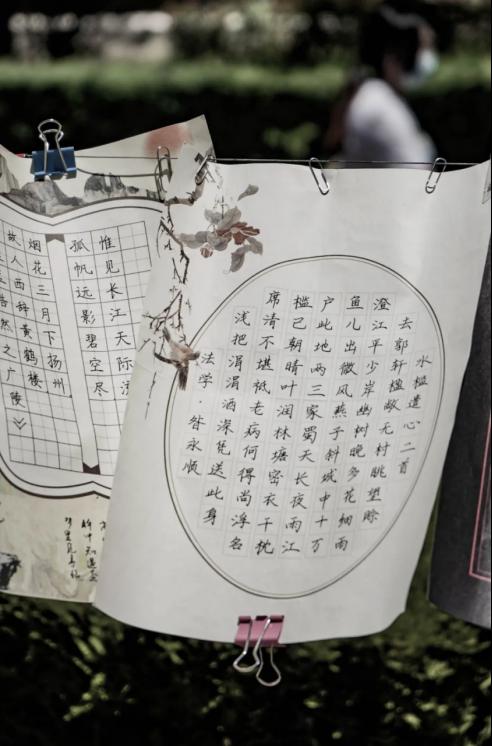 水槛遣心二首
去郭轩楹敞无村眺望赊
澄江平少岸幽树晚多花细雨
鱼儿出微风燕子斜城中十万
户此地两三家蜀天长夜雨江
槛己朝晴叶润林塘密衣干枕
席清不堪祗老病何得尚浮名
浅把涓涓酒深凭送此身
法学·昝永顺
惟见长江天际流
孤帆远影碧空尽
烟花三月下扬州
故人西辞黄鹤楼
浩然之广陵